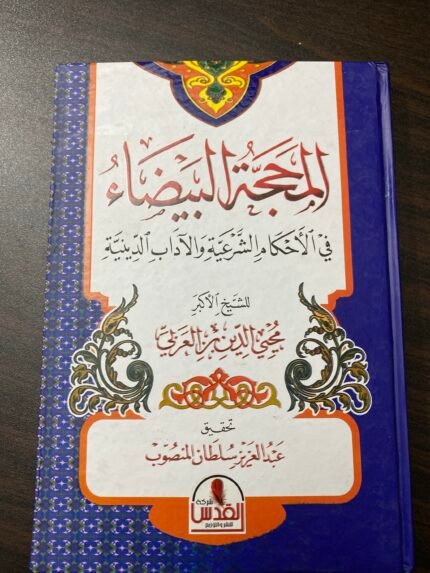 المَحَجَّةُ البَيْضَاءُ
فِي الأَحْكَامِ الشَّرْعِيَّةِ وَالآدَابِ الدِّينِيَّةِ
للشيخ الأكبر
مُحْيِي الدِّين بْن العَرَبِي
تحقيق
عَبْد العَزِيز سُلْطَان المَنْصُوب
شركة
القدس
للنشر والتوزيع